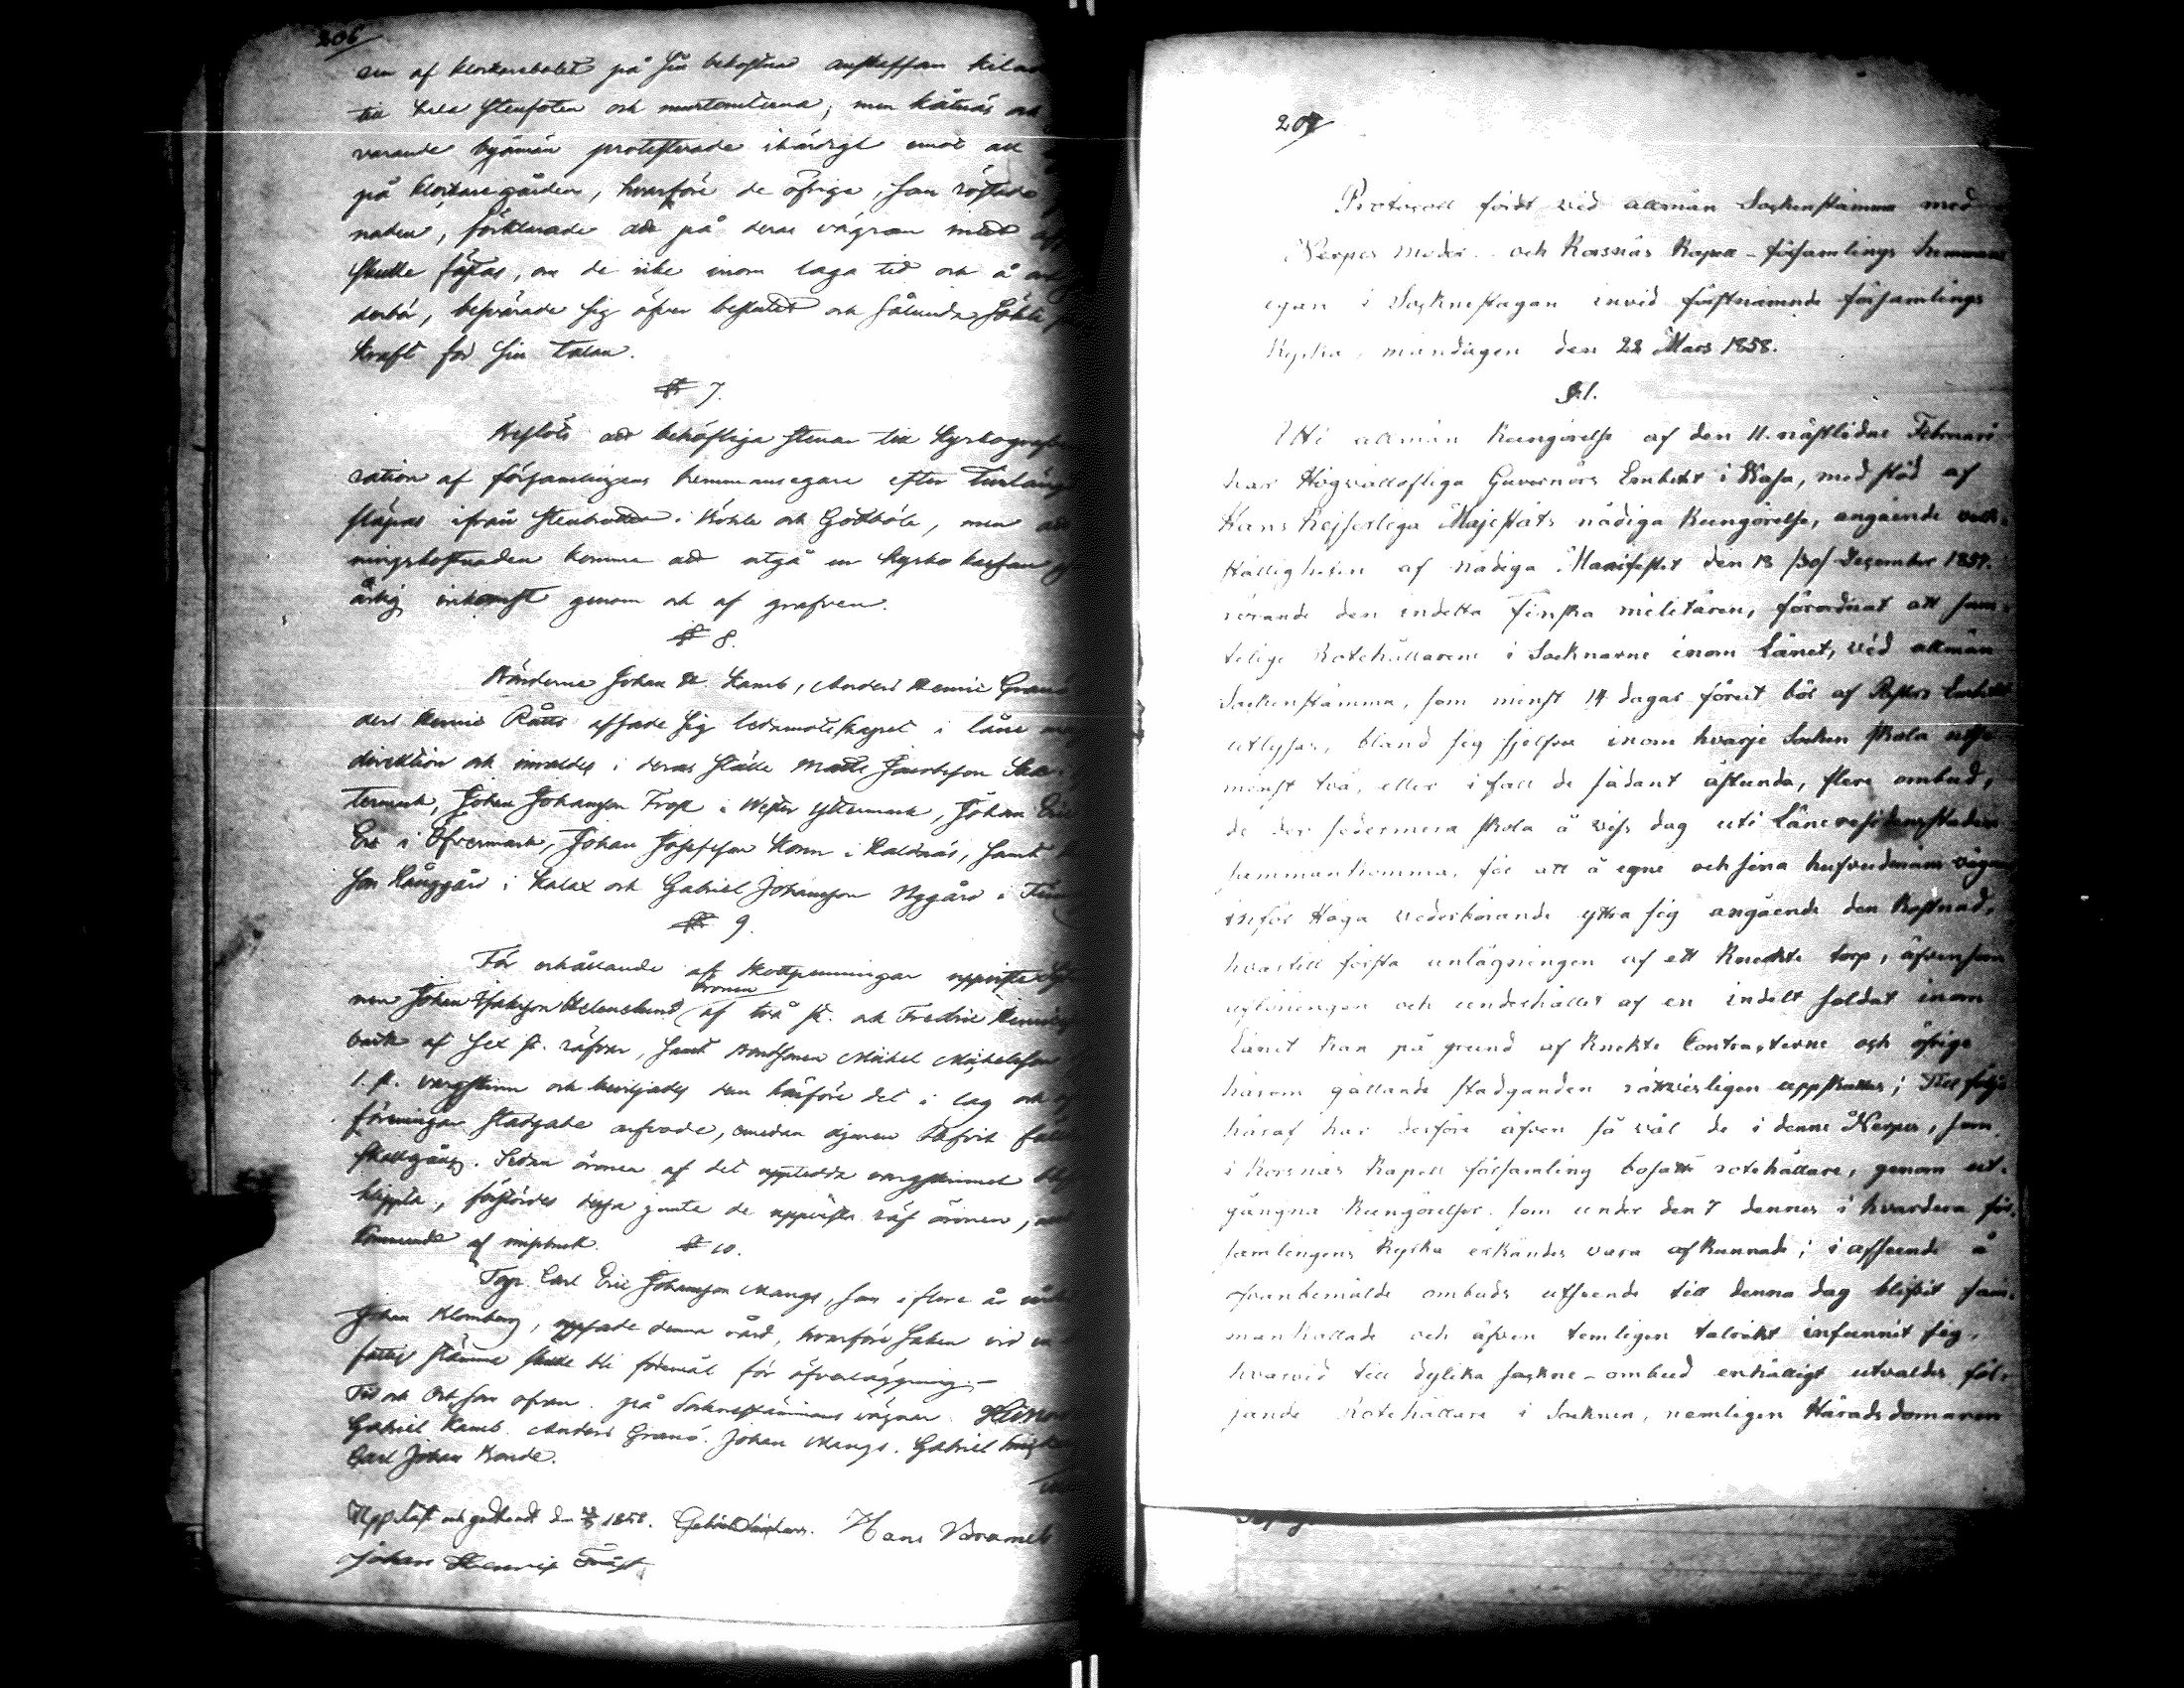 206
em af klockarebolet på sin bekostnad anskaffan
till hela stenfoten och murtomterna; men
varande byamän protesterade ihärdigt emot att
på klockaregården, hvarföre de öfrige, som röstade
naden, förklarade att på deras vägran intet
skulle fästas, om de icke inom laga tid och å
derbör, besvärade sig öfver beslutet och sålunda sökte
kraft för sin talan.
§ 7.
Beslöts att behöfliga stenar till
ration af församlingens hemmansegare efter
släpas ifrån stenbrotten i Böhle och Gottböle, men
ningskostnaden komma att utgå ur kyrko kassan
årlig inkomst genom och af grafven.
§ 8.
Bönderna Johan H. Kamb, Anders Henric
ders Henric Rätts afsade sig ledamotskapet i låne
direktion och invaldes i deras ställe Matts Jacobsson
termark, Johan Johansson Frost i Wester Yttermark, Johan Eric
i Öfvermark, Johan Josefsson Korn i Kaldnäs, samt
son Långgård i Kalax och Gabriel Johansson Nygård i
§ 9.
För erhållande af skottpenningar uppviste
nen Johan Isaksson Helenelund öronen af två st. och Fredric
back af sex st. räfvar, samt bondsonen Mickel Mickelsson
1. st. vargskinn och beviljades dem härföre det i lag och
föreningar stadgade arfvode, emedan djuren blifvit
skallgång. Sedan öronen af det uppledda vargskinnet
klippta, förstördes dessa jemte de uppviste räf öronen,
kommande af missbruk.
§ 10.
Torp. Carl Eric Johansson Mangs, som i flere år
Johan Klomberg, uppsade denna vård, hvarföre saken vid
fattig stämma skulle bli föremål för öfverläggning.—
Tid och Ort som ofvan. på Sockenstämmans vägnar.
Gabriel Kamb. Anders Granö. Johan Mangs. Gabriel
Carl Johan Bonde.
Uppläst och godkändt den 1858. Hans
Johan Henrik Frost
207
Protocoll fördt vid allmän Sockenstämma med
Nerpes Moder- och Korsnäs Kapell-församlings hemmans
egare i Socknestugan invid förstnämnde församlings
Kyrka, måndagen den 22 Mars 1858.
§ 1.
Uti allmän Kungörelse af den 11. nästlidne Februari
har Högvällofliga Guvernörs Embetet i Wasa, med stöd af
Hans Kejserliga Majestäts nådiga Kungörelse, angående verk-
ställigheten af nådiga Manifestet den 18/30 December 1854.
rörande den indelta Finska militären, förordnat att sam-
telige Rotehållarene i Socknarne inom Länet, vid allmän
Sockenstämma, som minst 14 dagar förut bör af Pastors Embetet
utlysas, bland sig sjelfva inom hvarje Socken skola utse
minst två, eller i fall de sådant åstunda, flere ombud,
de der sedermera skola å viss dag uti Länersidensstaden
sammankomma, för att å egne och sina hufvudmäns vägnar
inför Höga vederbörande yttra sig angående den kostnad,
hvartill första anläggningen af ett Knekte torp, äfvensom
aflöningen och underhållet af en indelt soldat inom
Länet kan på grund af Knekte Contracterne och öfrige
härom gällande stadganden rättvisligen uppskattas; Till följe
häraf har derföre äfven så väl de i denne Nerpes, som
i Korsnäs Kapell församling bosatte rotehållare, genom ut-
gångna Kungörelser. som under den 7 dennes i hvardera för-
samlingens Kyrka erkändes vara afkunnade; i afseende å
ofvanbemälde ombuds utseende till denna dag blifvit sam-
mankallade och äfven temligen talrikt infunnit sig,
hvarvid till dylika sockne-ombud enhälligt utvaldes föl-
jande Rotehållare i Socknen, nemligen Häradsdomaren